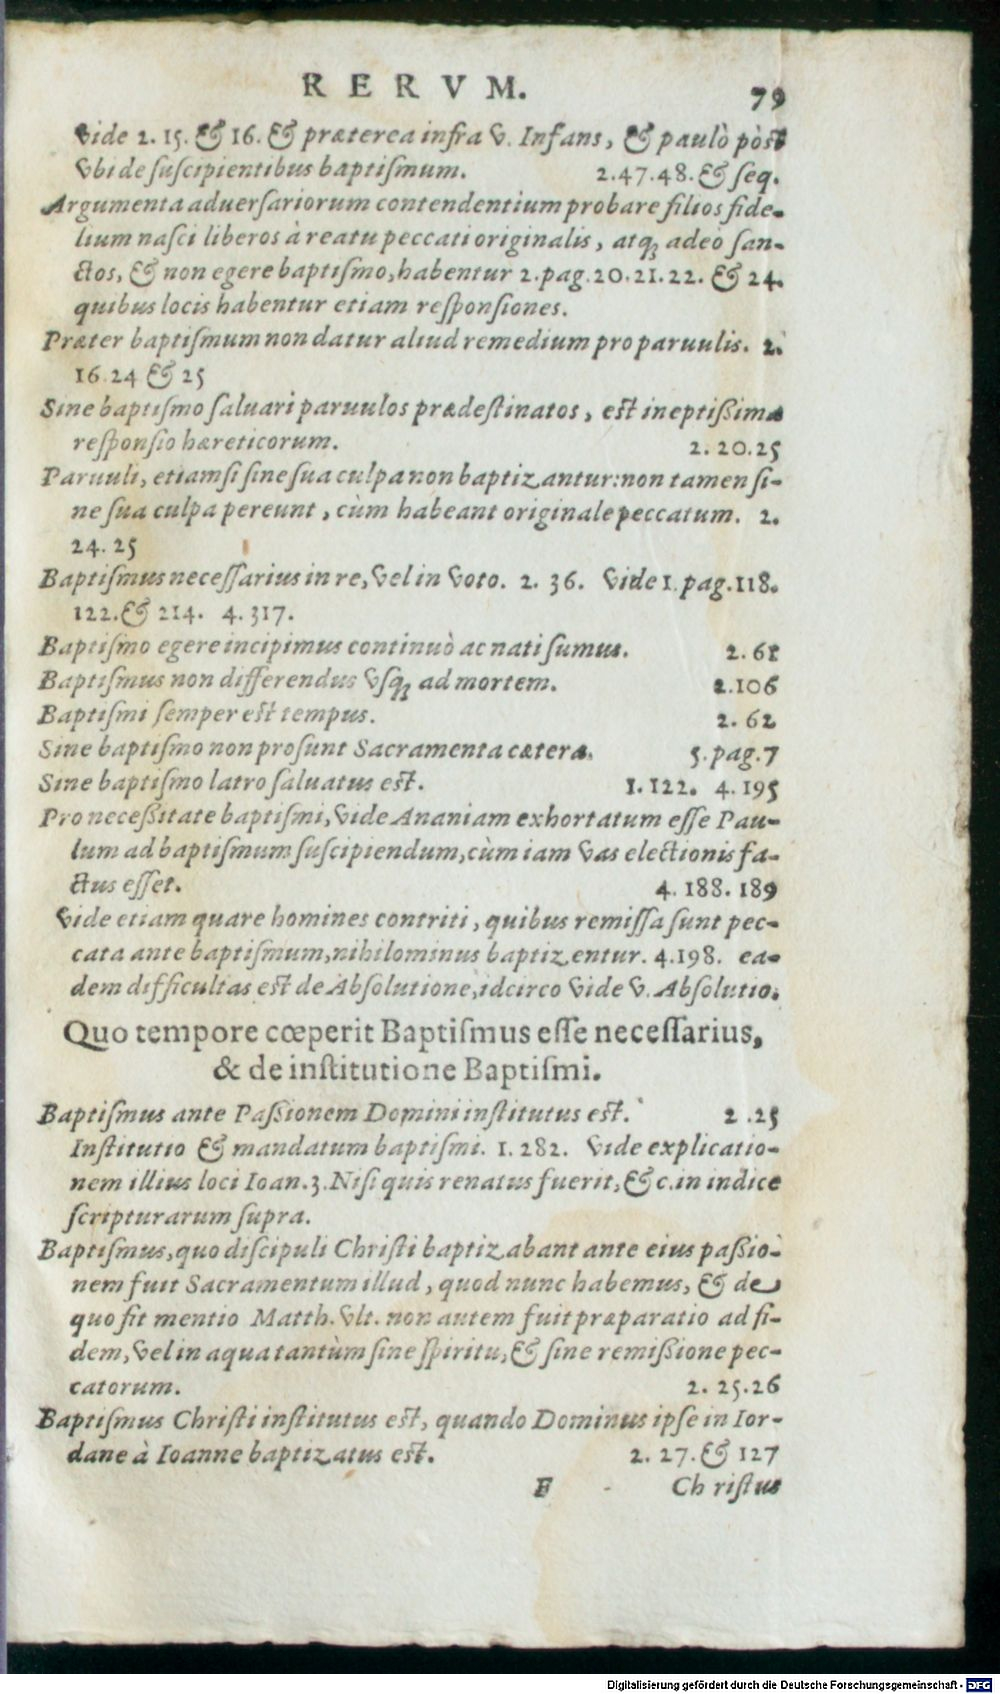 RERVM. 79
vide 2. 15. & 16. & præterea infra v. Infans, & paulò pòst
vbi de suscipientibus baptismum. 2.47.48. & seq.
Argumenta aduersariorum contendentium probare filios fide-
lium nasci liberos à reatu peccati originalis, atq; adeò san-
ctos, & non egere baptismo, habentur 2. pag. 20. 21. 22. & 24.
quibus locis habentur etiam responsiones.
Præter baptismum non datur aliud remedium pro paruulis. 2.
16. 24 & 25
Sine baptismo saluari paruulos prædestinatos, est ineptißima
responsio hæreticorum. 2. 20. 25
Paruuli, etiamsi sine sua culpa non baptizantur: non tamen si-
ne sua culpa pereunt, cùm habeant originale peccatum. 2.
24. 25
Baptismus necessarius in re, vel in voto. 2. 36. vide 1. pag. 118.
122. & 214. 4. 317.
Baptismo egere incipimus continuò ac nati sumus. 2. 61
Baptismus non differendus vsq; ad mortem. 2.106
Baptismi semper est tempus. 2. 62
Sine baptismo non prosunt Sacramenta cætera. 5. pag. 7
Sine baptismo latro saluatus est. 1. 122. 4. 195
Pro neceßitate baptismi, vide Ananiam exhortatum esse Pau-
lum ad baptismum suscipiendum, cùm iam vas electionis fa-
ctus esset. 4. 188. 189
Vide etiam quare homines contriti, quibus remissa sunt pec-
cata ante baptismum, nihilominus baptizentur. 4.198. ea-
dem difficultas est de Absolutione, idcirco vide v. Absolutio.
Quo tempore cœperit Baptismus esse necessarius,
& de institutione Baptismi.
Baptismus ante Paßionem Domini institutus est. 2 .25
Institutio & mandatum baptismi. 1. 282. vide explicatio-
nem illius loci Ioan. 3. Nisi quis renatus fuerit, &c. in indice
scripturarum supra.
Baptismus, quo discipuli Christi baptizabant ante eius paßio-
nem fuit Sacramentum illud, quod nunc habemus, & de
quo fit mentio Matth. vlt. non autem fuit præparatio ad fi-
dem, vel in aqua tantùm sine spiritu, & sine remißione pec-
catorum. 2. 25. 26
Baptismus Christi institutus est, quando Dominus ipse in Ior-
dane à Ioanne baptizatus est. 2. 27. & 127
F Christus
Digitalisierung gefördert durch die Deutsche Forschungsgemeinschaft - DFG